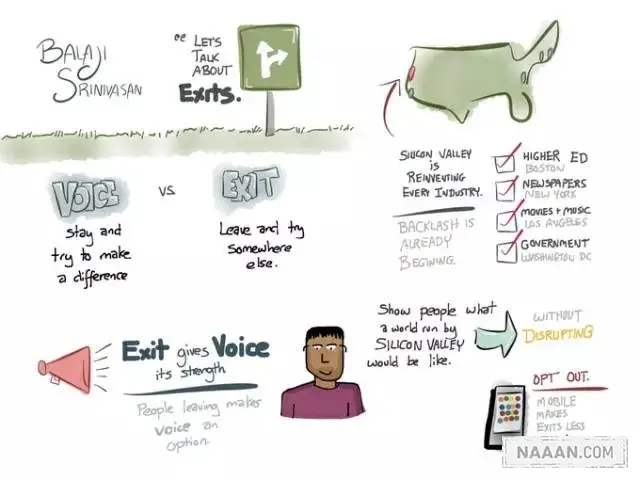 BALAJI
SRINIVASAN
"LET'S
TALK
ABOUT
Exits.
VOICE
vs.
EXIT
Stay and
try to make
a difference
Leave and try
Somewhere
else.
SILICON VALLEY
IS
REINVENTING
EVERY INDUSTRY.
BACKLASH IS
ALREADY
BEGINING.
HIGHER ED
BOSTON
NEWSPAPERS
NEW YORK
MOVIES + MUSIC
LOS ANGELES
GOVERNMENT
WASHINGTON DC
Exit gives Voice
its strength
People leaving makes
voice an
option.
Show people what
a world run by
SILICON VALLEY
would be like.
WITHOUT
DISRUPTING
OPT OUT.
MOBILE
MAKES
EXITS LESS
NAAAN.COM